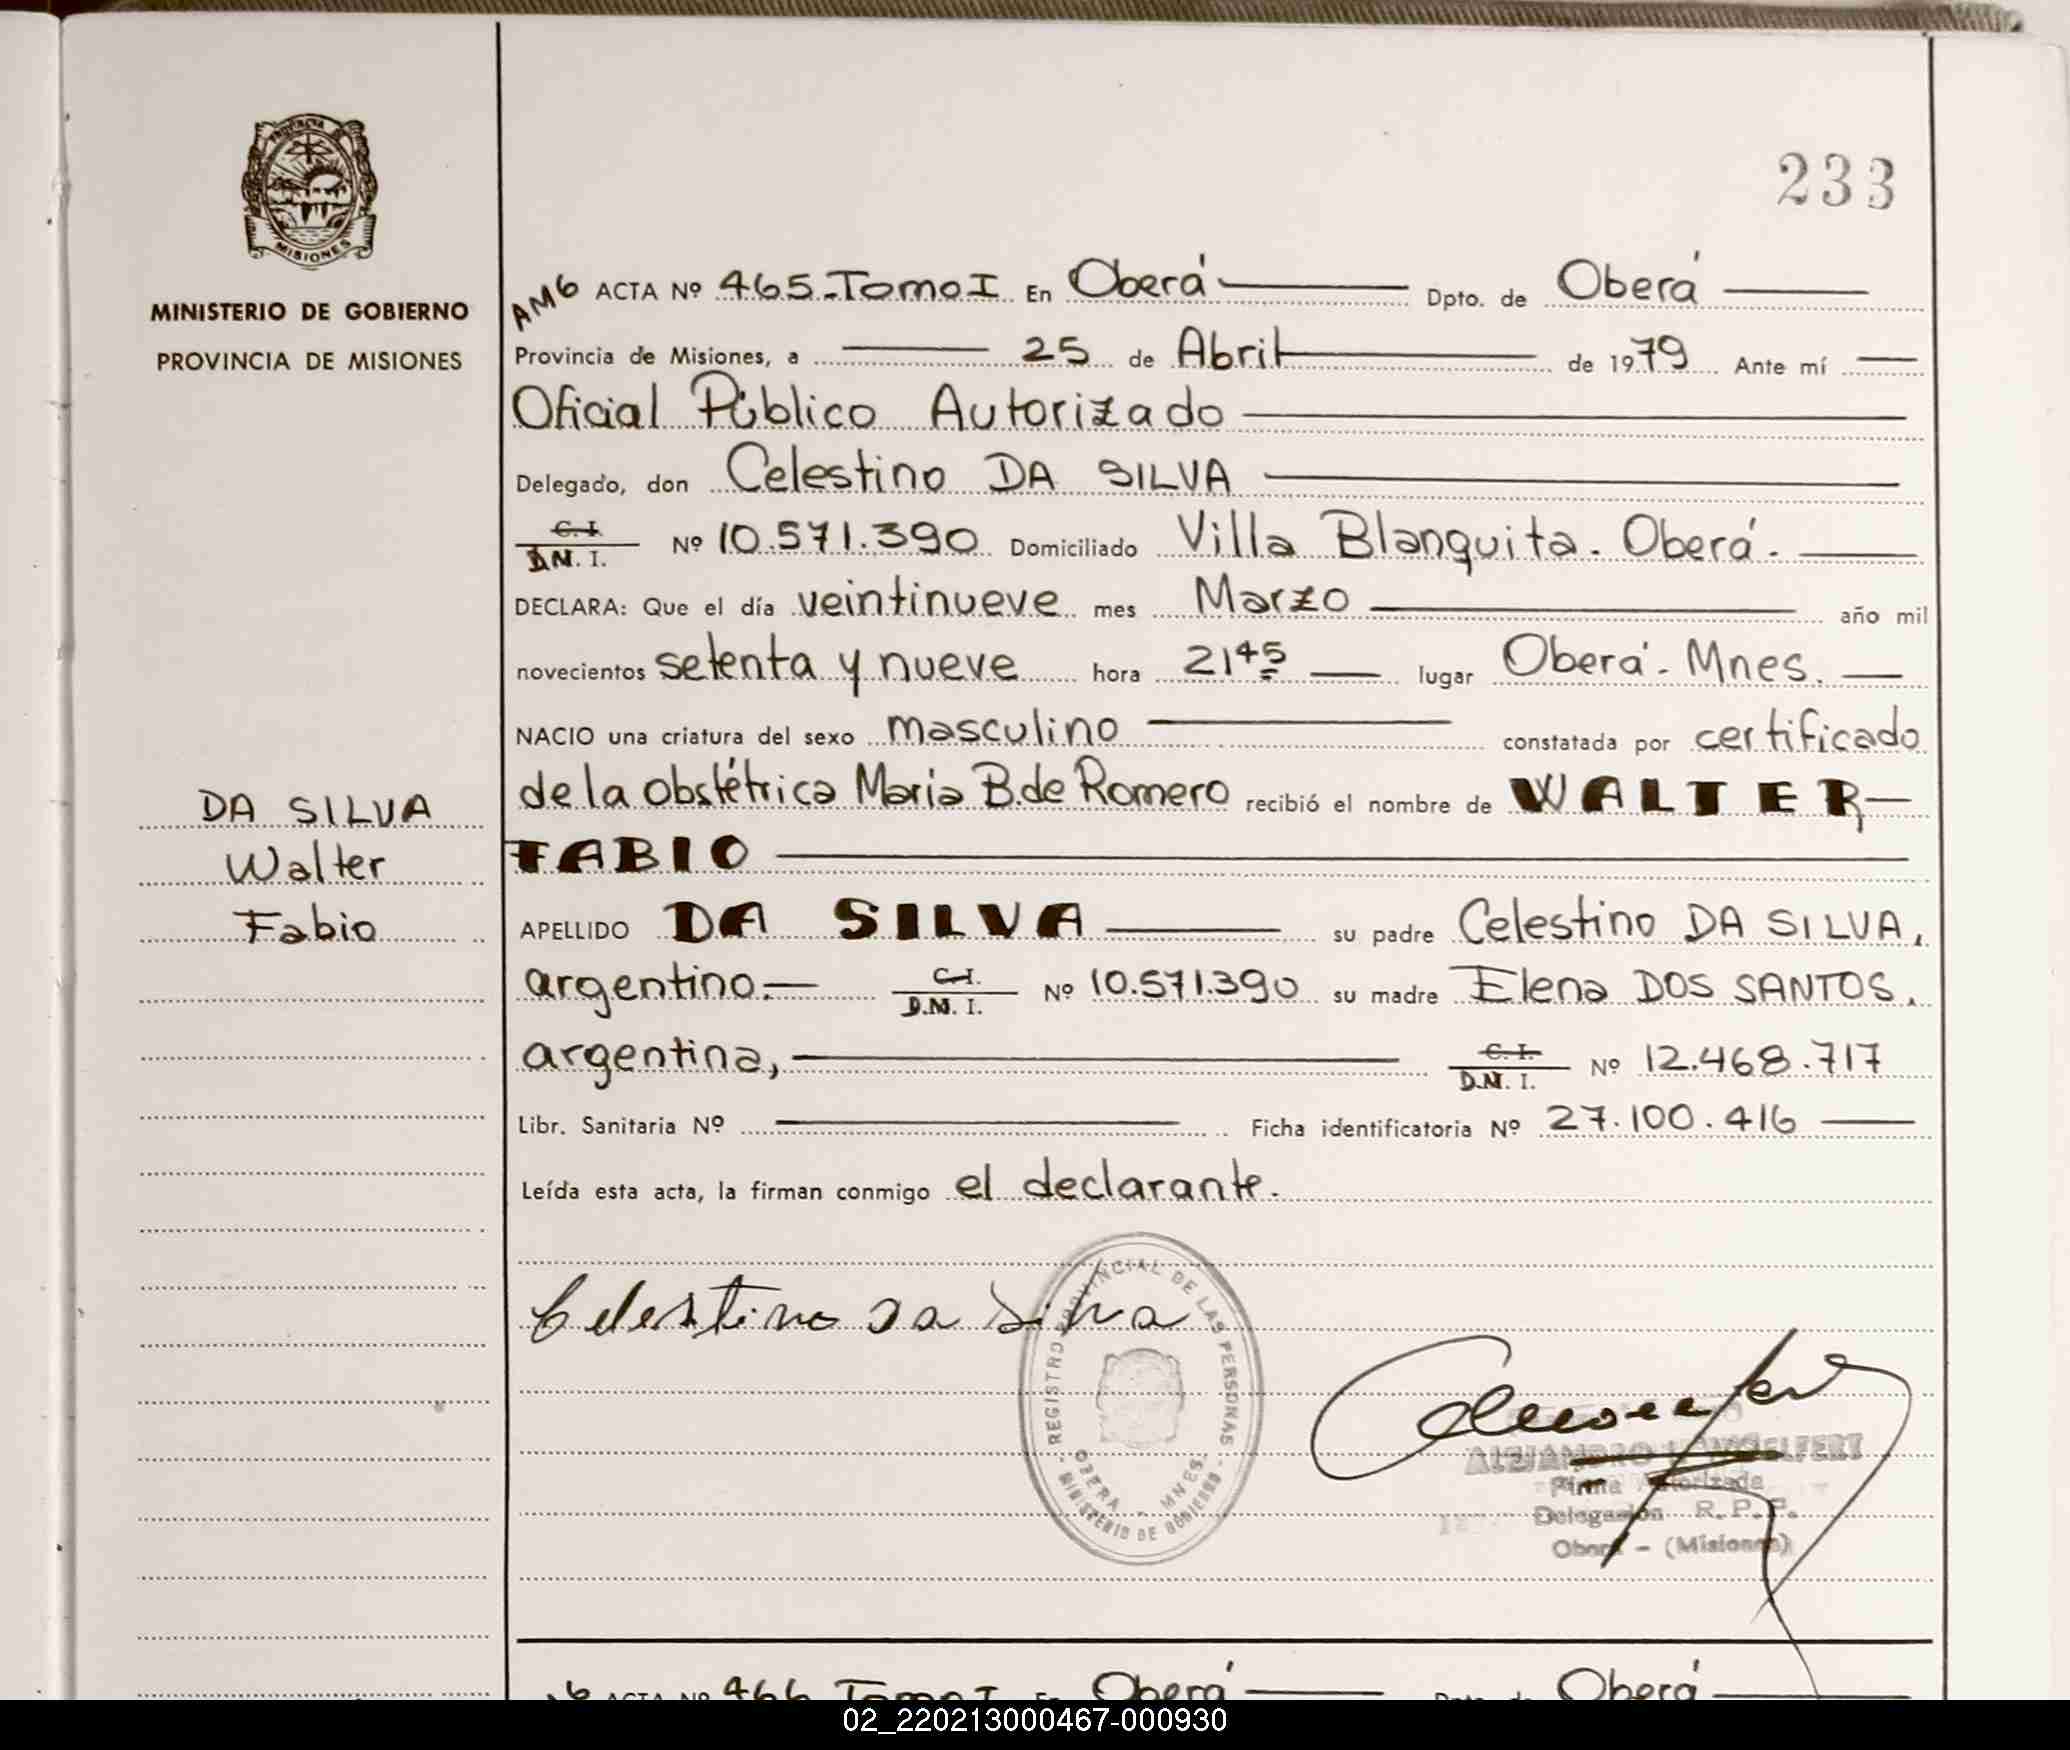 233
PROVINCIA D
MISIONES
MINISTERIO DE GOBIERNO
PROVINCIA DE MISIONES
AM6 ACTA Nº 465.Tomo I En Oberá Dpto. de Oberá
Provincia de Misiones, a 25 de Abril de 1979 Ante mí
Oficial Público Autorizado
Delegado, don Celestino DA SILVA
C.I.
D.N.I. Nº 10.571.390 Domiciliado Villa Blanquita. Oberá.
DECLARA: Que el día veintinueve mes Marzo año mil
novecientos setenta y nueve hora 21 45 lugar Oberá. Mnes.
NACIO una criatura del sexo masculino constatada por certificado
de la obstétrica Maria B. de Romero recibió el nombre de WALTER
FABIO
DA SILVA
Walter
Fabio
APELLIDO DA SILVA su padre Celestino DA SILVA,
argentino. C.I.
D.N.I. Nº 10.571.390 su madre Elena DOS SANTOS,
argentina, C.I.
D.N.I. Nº 12.468.717
Libr. Sanitaria Nº Ficha identificatoria Nº 27.100.416
Leída esta acta, la firman conmigo el declarante.
Celestino Da Silva
REGISTRO PROVINCIAL DE LAS PERSONAS
OBERA - MNES.
- MINISTERIO DE GOBIERNO -
ALEJANDRO
Firma Autorizada
Delegación R.P.P.
Oberá - (Misiones)
ACTA Nº 466 Tomo I En Oberá Dpto. de Oberá
02_220213000467-000930